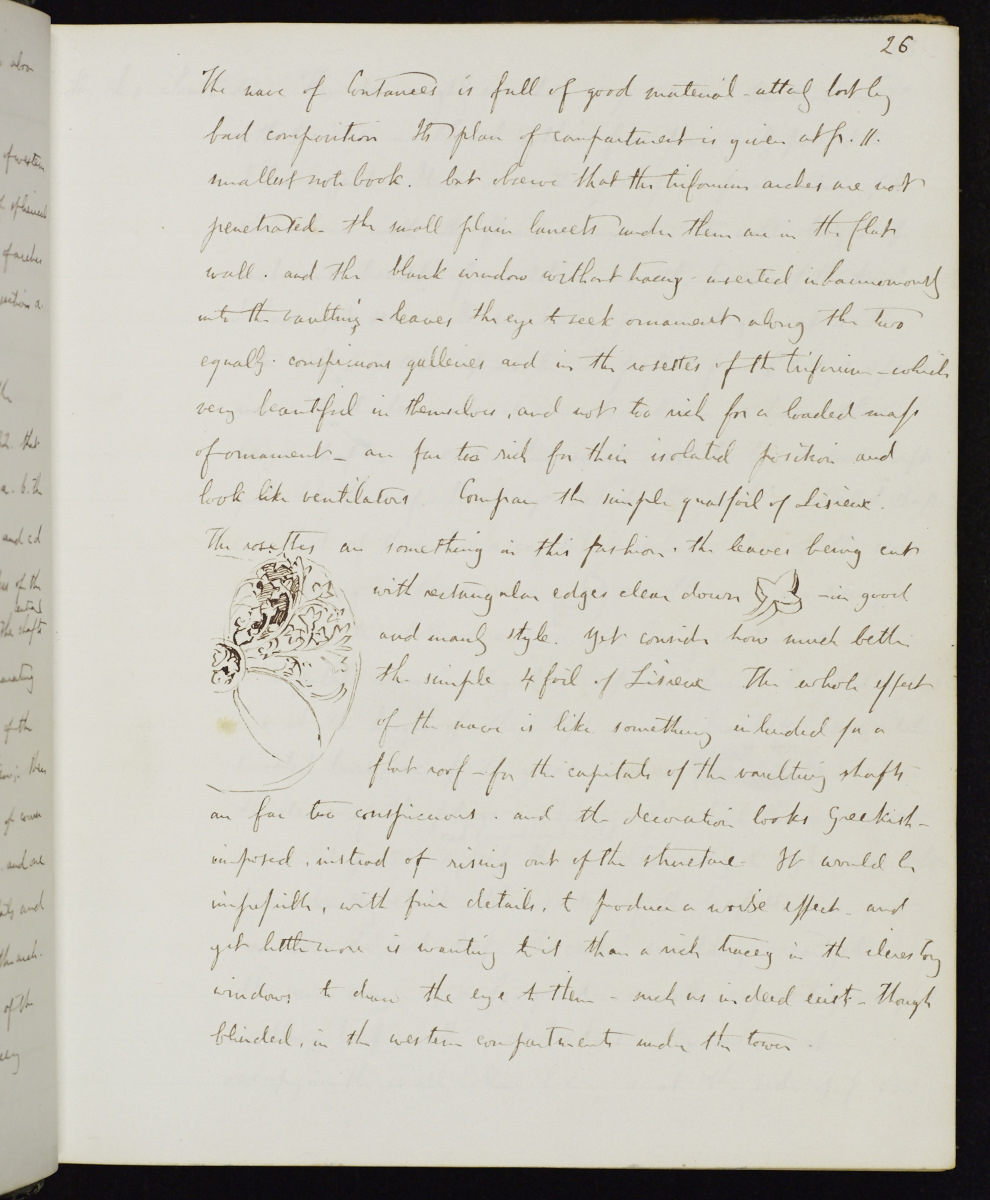 26
The nave of Coutances is full of good material - utterly lost by
bad composition Its plan of compartment is given at p. 11.
smallest note book. but observe that the triforium arches are not
penetrated - the small plain lancets under them are in the flat
wall. and the blank window without tracery - inserted inharmoniously
into the vaulting - leaves the eye to seek ornament along the two
equally conspicuous galleries and in the rosettes of the triforium - which
very beautiful in themselves, and not too rich for a loaded mass
of ornament - are far too rich for their isolated position and
look like ventilators Compare the simple quatfoil of Lisieux.
The rosettes are something in this fashion. the leaves being cut
with rectangular edges clean down - in good
and manly style. Yet consider how much better
the simple 4 foil of Lisieux The whole effect
of the nave is like something intended for a
flat roof - for the capitals of the vaulting shafts
are far too conspicuous. and the decoration looks Greekish -
imposed, instead of rising out of the structure - It would be
impossible, with fine details, to produce a worse effect - and
yet little more is wanting to it than a rich tracery in the clerestory
windows to draw the eye to them - such as indeed exist - though
blinded, in the western compartments under the tower.